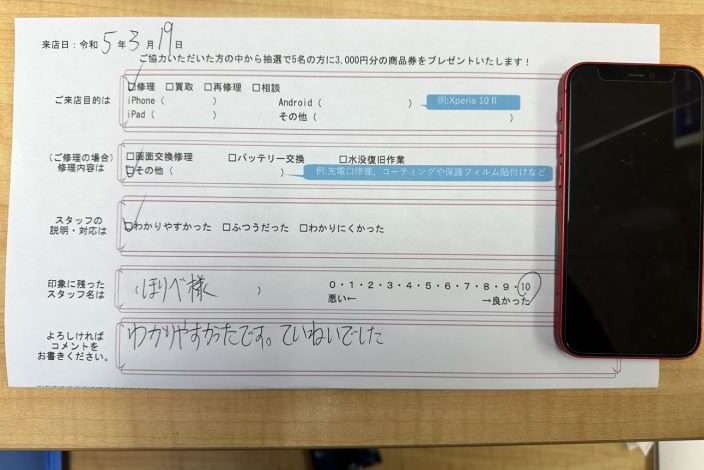 来店日：令和 5 年 3 月 19 日
ご協力いただいた方の中から抽選で5名の方に3,000円分の商品券をプレゼントいたします！
ご来店目的は
☑修理 □買取 □再修理 □相談
iPhone（ ） Android（ ） 例:Xperia 10 II
iPad（ ） その他（ ）
（ご修理の場合）
修理内容は
□画面交換修理 □バッテリー交換 □水没復旧作業
☑その他（ ） 例:充電口修理、コーティングや保護フィルム貼付けなど
スタッフの
説明・対応は
☑わかりやすかった □ふつうだった □わかりにくかった
印象に残った
スタッフ名は
（ ほりべ様 ）
0・1・2・3・4・5・6・7・8・9・10
悪い← →良かった
よろしければ
コメントを
お書きください。
わかりやすかったです。ていねいでした